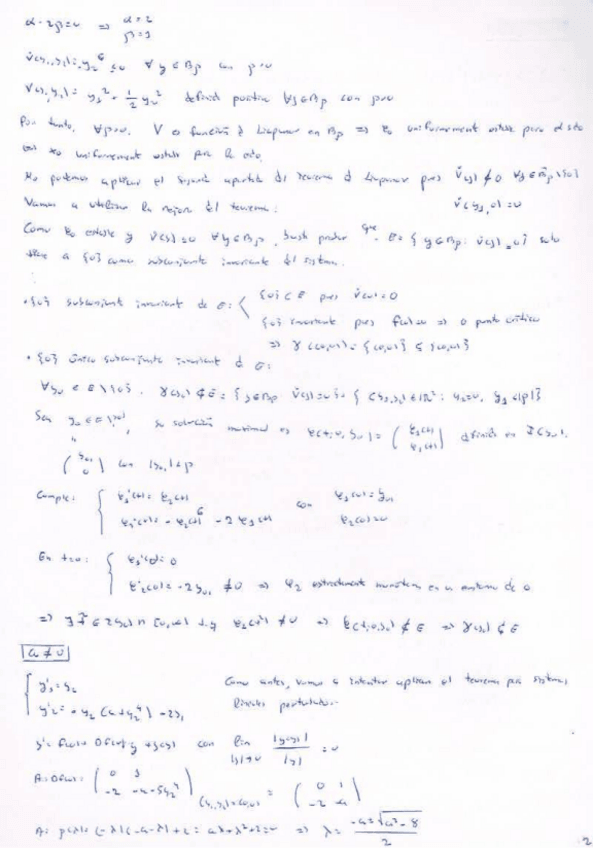 α - 2β = 0 => α = 2
β = 1
∀ y ∈ Bρ con ρ > 0
V(y1, y2) = y1² + 1/2 y2² definida positiva ∀y ∈ Bρ con ρ>0
Por tanto, ∀ρ>0, V es función d Liapunov en Bρ => x0 uniformemente estable para el sto
uniformemente estable para la edo.
No podemos aplicar el segundo apartado del teorema d Liapunov pues V̇(y) ≠ 0 ∀y ∈ Bρ\{0}
V̇(y1, 0) = 0
Vamos a utilizar la mejora del teorema:
Como x0 estable y V̇(y) ≤ 0 ∀y ∈ Bρ, basta probar que E = { y ∈ Bρ: V̇(y) = 0 } solo
tiene a {0} como subconjunto invariante del sistema.
• {0} subconjunto invariante de E: { {0} ⊂ E pues V̇(0) = 0
{0} invariante pues f(0) = 0 => 0 punto crítico
=> γ((0,0)) = {(0,0)} ⊆ {(0,0)}
• {0} único subconjunto invariante d E:
∀y0 ∈ E\{0}, γ(y0) ⊄ E = { y ∈ Bρ V̇(y) = 0 } = { (y1, y2) ∈ ℝ²: y2 = 0, |y1| < ρ }
Sea y0 ∈ E\{0}, su solución maximal es φ(t, 0, y0) = (φ1(t) φ2(t)) definida en I(y0).
(y01 0) con |y01| < ρ
Cumple: { φ1'(t) = φ2(t) con φ1(0) = y01
- 2 φ1(t) φ2(0) = 0
En t=0: { φ1'(0) = 0
φ2'(0) = -2 y01 ≠ 0 => φ2 estrictamente monótona en un entorno de 0
=> ∃ t̃ ∈ I(y0) ∩ [0, ∞) t.q φ2(t̃) ≠ 0 => φ(t̃, 0, y0) ∉ E => γ(y0) ⊄ E
a ≠ 0
{ y1' = y2 Como antes, vamos a intentar aplicar el teorema para sistemas
y2' = - y2 (a + y2⁴) - 2y1 lineales perturbados.
y' = f(0) + Df(0) y + g(y) con lim |y|→0 |g(y)| / |y| = 0
A = Df(0) = ( 0 1 -2 -a - 5y2⁴ ) (y1, y2) = (0,0) = ( 0 1 -2 -a )
A: p(λ) = (-λ)(-a-λ) + 2 = aλ + λ² + 2 = 0 => λ = (-a ± √(a² - 8)) / 2
2